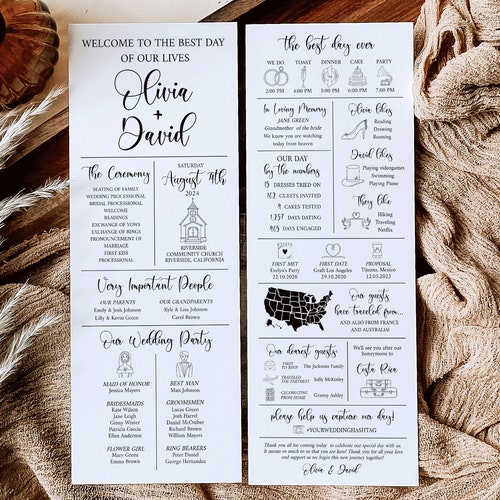 WELCOME TO THE BEST DAY
OF OUR LIVES
Olivia
+
David
The Ceremony
SEATING OF FAMILY
WEDDING PROCESSIONAL
BRIDAL PROCESSIONAL
WELCOME
READINGS
EXCHANGE OF VOWS
EXCHANGE OF RINGS
PRONOUNCEMENT OF
MARRIAGE
FIRST KISS
PROCESSIONAL
SATURDAY
August 4th
2024
RIVERSIDE
COMMUNITY CHURCH
RIVERSIDE, CALIFORNIA
Very Important People
OUR PARENTS
Emily & Josh Johnson
Lilly & Kevin Green
OUR GRANDPARENTS
Kyle & Lisa Johnson
Carol Brown
Our Wedding Party
MAID OF HONOR
Jessica Mayers
BRIDESMAIDS
Kate Wilson
Jane Leigh
Ginny Winter
Patricia Garcia
Ellen Anderson
FLOWER GIRL
Mary Green
Emma Brown
BEST MAN
Matt Johnson
GROOMSMEN
Lucas Green
Josh Harrel
Daniel McOmber
Richard Brown
William Mayers
RING BEARERS
Peter Daniel
George Hernandez
the best day ever
WE DO TOAST DINNER CAKE PARTY
2:00 PM 4:00 PM 5:00 PM 6:00 PM 7:00 PM
In Loving Memory
JANE GREEN
Grandmother of the bride
We know you are watching
today from heaven
OUR DAY
by the numbers
15 DRESSES TRIED ON
112 GUESTS INVITED
4 CAKES TESTED
1257 DAYS DATING
465 DAYS ENGAGED
Olivia likes
Reading
Drawing
Running
David likes
Playing videogames
Swimming
Playing Piano
They like
Hiking
Traveling
Netflix
FIRST MET
Evelyn's Party
22.10.2020
FIRST DATE
Graft Los Angeles
29.10.2020
PROPOSAL
Tijuana, Mexico
12.03.2023
Our guests
have traveled from...
AND ALSO FROM FRANCE
AND AUSTRALIA!
Our dearest guests
FIRST
TO RSVP
The Jacksons Family
TRAVELED
THE FARTHEST
Sally McKinley
CELEBRATING
FROM HOME
Granny Ashley
We'll see you after our
honeymoon to
Costa Rica
please help us capture our day!
#YOURWEDDINGHASHTAG
Thank you all for coming today to celebrate our special day with us.
It means so much to us that you are here! Thank you for all your love
and support as we begin this new journey together!
Olivia & David